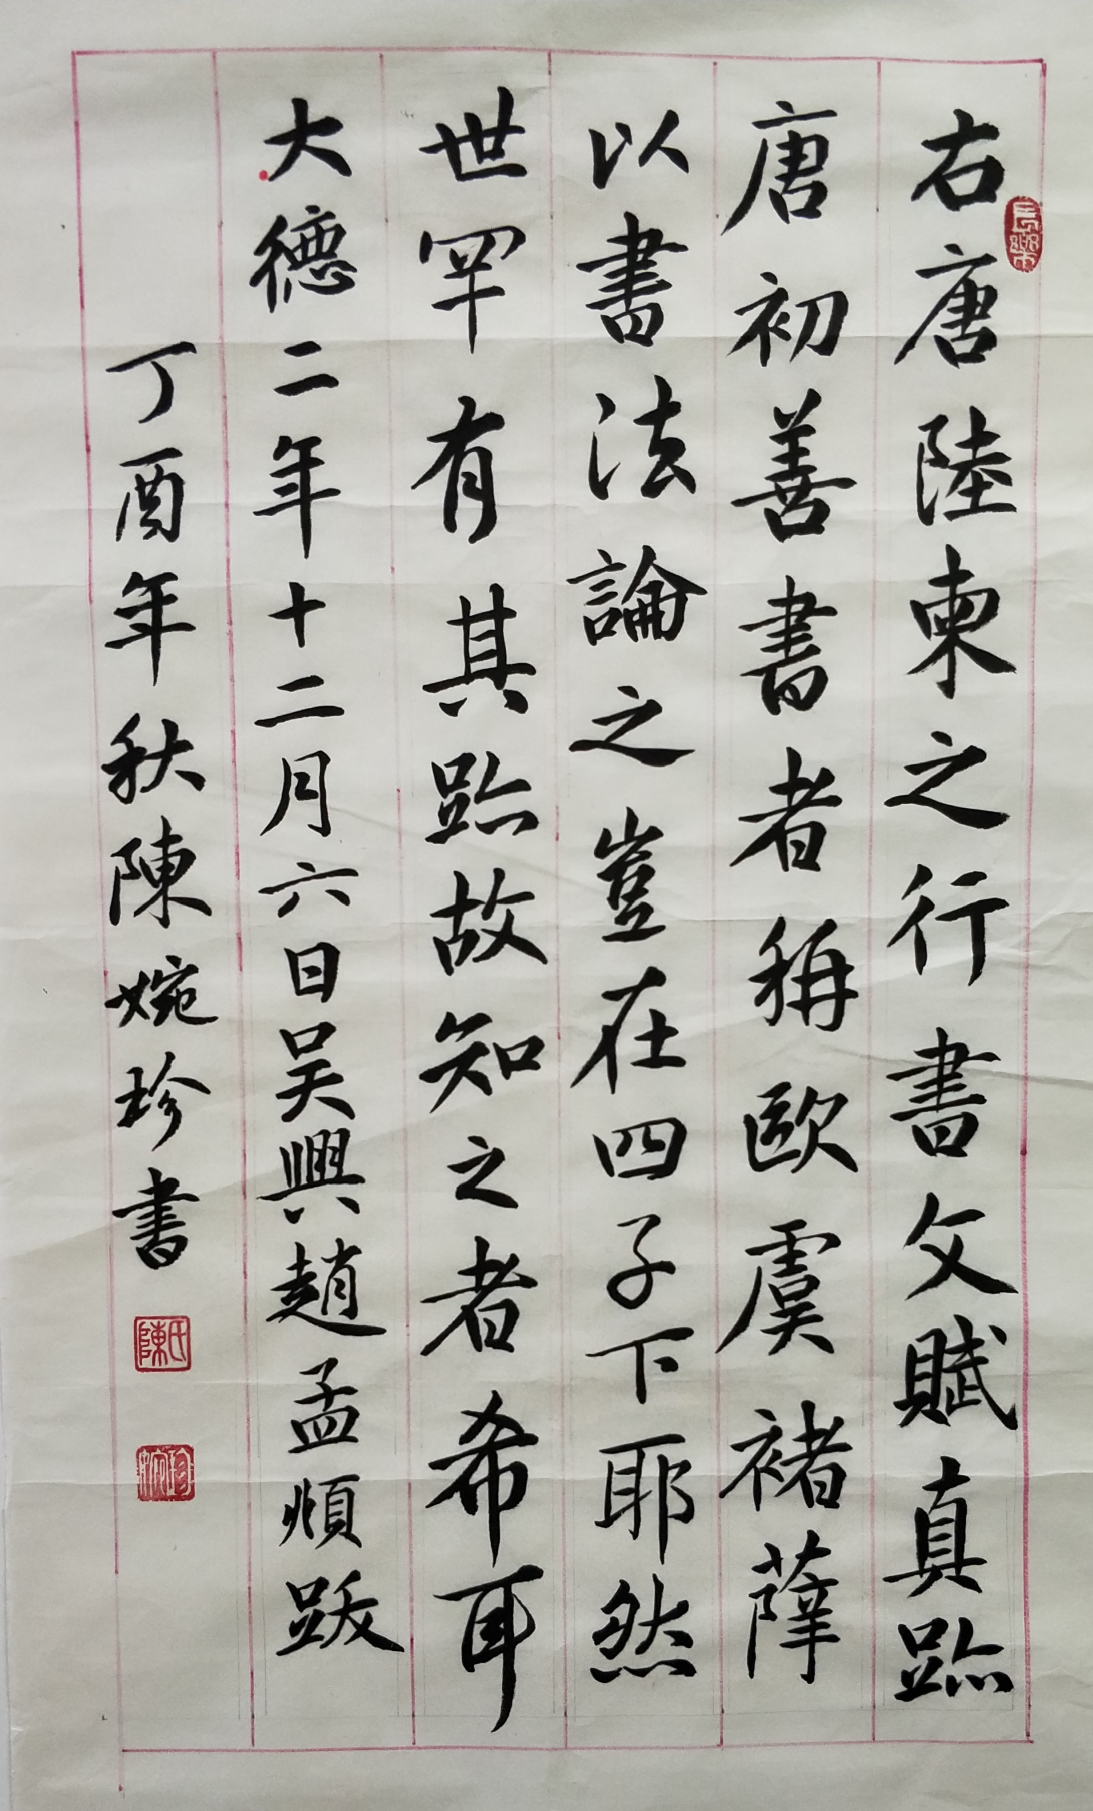 右唐陸柬之行書文賦真跡
長樂
唐初善書者稱歐虞褚薛
以書法論之豈在四子下耶然
世罕有其跡故知之者希耳
大德二年十二月六日吴興趙孟頫跋
丁酉年秋陳婉珍書
陳氏
婉珍